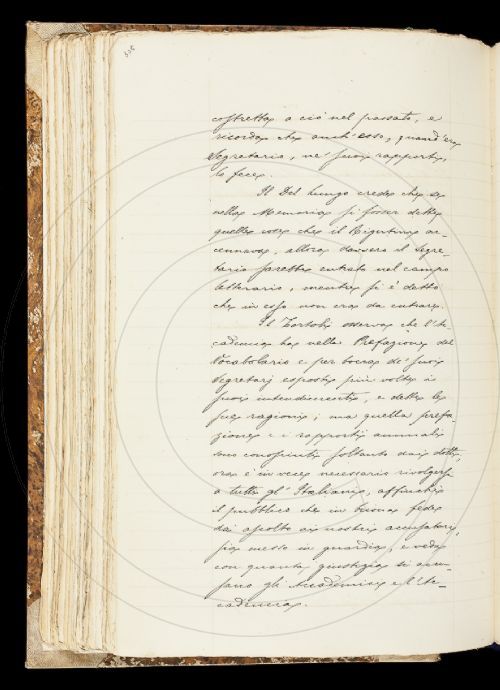 costretto a ciò nel passato, e
ricorda che anch'esso, quand'era
Segretario, ne' suoi rapporti,
lo fece.
Il Del Lungo crede che se
nella Memoria si fosser dette
quelle cose che il Rigutini ac-
cennava, allora davvero il Segre-
tario sarebbe entrato nel campo
letterario, mentre si è detto
che in esso non era da entrare.
Il Tortoli osserva che l'Ac-
cademia ha nella Prefazione del
Vocabolario e per bocca de' suoi
Segretarj esposti più volte i
suoi intendimenti, e dette le
sue ragioni; ma quella prefa-
zione e i rapporti annuali
sono conosciuti soltanto dai dotti,
ora è invece necessario rivolgersi
a tutti gl'Italiani, affinchè
il pubblico che in buona fede
dà ascolto ai nostri accusatori,
sia messo in guardia, e veda
con quanta giustizia si accu-
sano gli Accademici e l'Ac-
cademia.